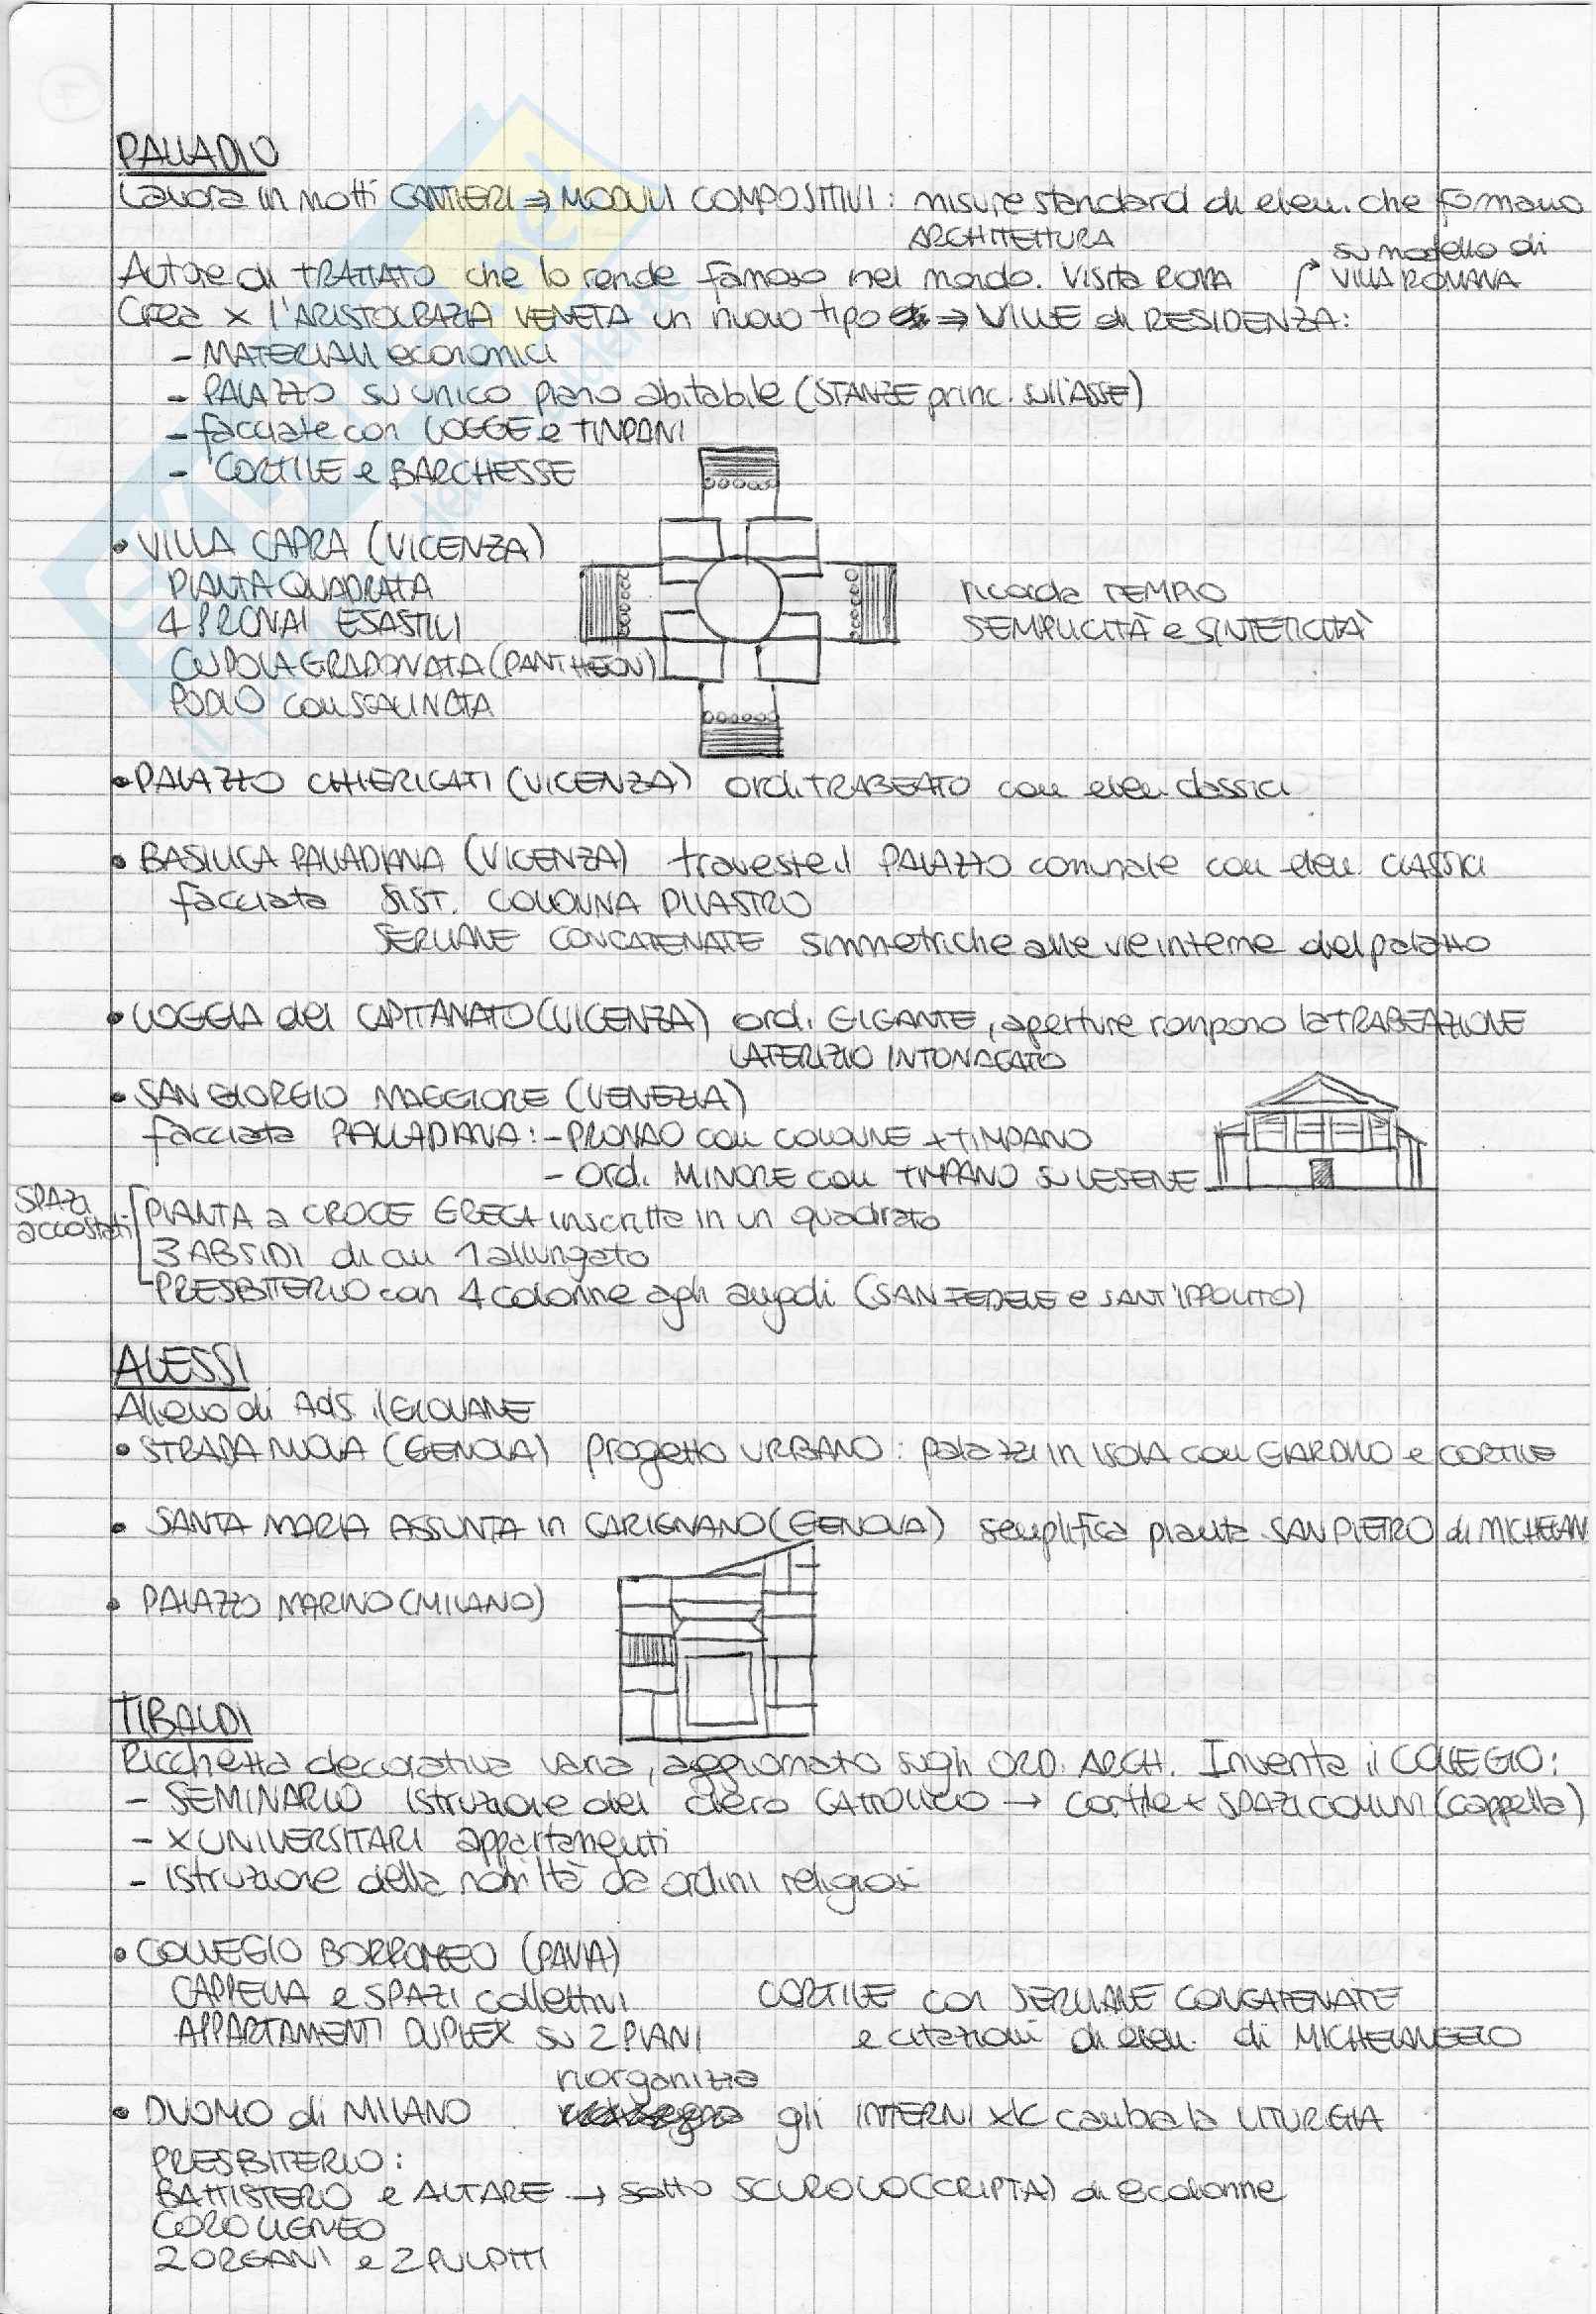 PALLADIO
Lavora in molti CANTIERI ⇒ MODULI COMPOSITIVI: misure standard di elem. che formano
ARCHITETTURA
Autore di TRATTATO che lo rende famoso nel mondo. Visita ROMA
su modello di
VILLA ROMANA
Crea x l'ARISTOCRAZIA VENETA un nuovo tipo ⇒ VILLE di RESIDENZA:
- MATERIALI economici
- PALAZZO su unico piano abitabile (STANZE princ. sull'ASSE)
- facciate con LOGGE e TIMPANI
- CORTILE e BARCHESSE
• VILLA CAPRA (VICENZA)
PIANTA QUADRATA
4 PRONAI ESASTILI
CUPOLA GRADONATA (PANTHEON)
PODIO con SCALINATA
ricorda TEMPIO
SEMPLICITÀ e SINTETICITÀ
• PALAZZO CHIERICATI (VICENZA) ord. TRABEATO con elem. classici
• BASILICA PALLADIANA (VICENZA) traveste il PALAZZO comunale con elem. CLASSICI
facciata SIST. COLONNA PILASTRO
SERLIANE CONCATENATE simmetriche alle vie interne del palazzo
• LOGGIA del CAPITANATO (VICENZA) ord. GIGANTE, aperture rompono la TRABEAZIONE
LATERIZIO INTONACATO
• SAN GIORGIO MAGGIORE (VENEZIA)
facciata PALLADIANA: - PRONAO con COLONNE + TIMPANO
- ord. MINORE con TIMPANO su LESENE
SPAZI
accostati
PIANTA a CROCE GRECA inscritta in un quadrato
3 ABSIDI di cui 1 allungato
PRESBITERIO con 4 colonne agli angoli (SAN FEDELE e SANT'IPPOLITO)
ALESSI
Allievo di AdS. il GIOVANE
• STRADA NUOVA (GENOVA) progetto URBANO: palazzi in ISOLA con GIARDINO e CORTILE
• SANTA MARIA ASSUNTA in CARIGNANO (GENOVA) semplifica pianta SAN PIETRO di MICHELAN
• PALAZZO MARINO (MILANO)
TIBALDI
Ricchezza decorativa varia, aggiornato sugli ORD. ARCH. Inventa il COLLEGIO:
- SEMINARIO istruzione del clero CATTOLICO → cortile + SPAZI COMUNI (cappella)
- X UNIVERSITARI appartamenti
- istruzione della nobiltà da ordini religiosi
• COLLEGIO BORROMEO (PAVIA)
CAPPELLA e SPAZI collettivi
APPARTAMENTI DUPLEX su 2 PIANI
CORTILE con SERLIANE CONCATENATE
e citazioni di elem. di MICHELANGELO
riorganizza
• DUOMO di MILANO gli INTERNI xk cambia la LITURGIA
PRESBITERIO:
BATTISTERO e ALTARE → sotto SCUROLO (CRIPTA) di 8 colonne
CORO LIGNEO
2 ORGANI e 2 PULPITI